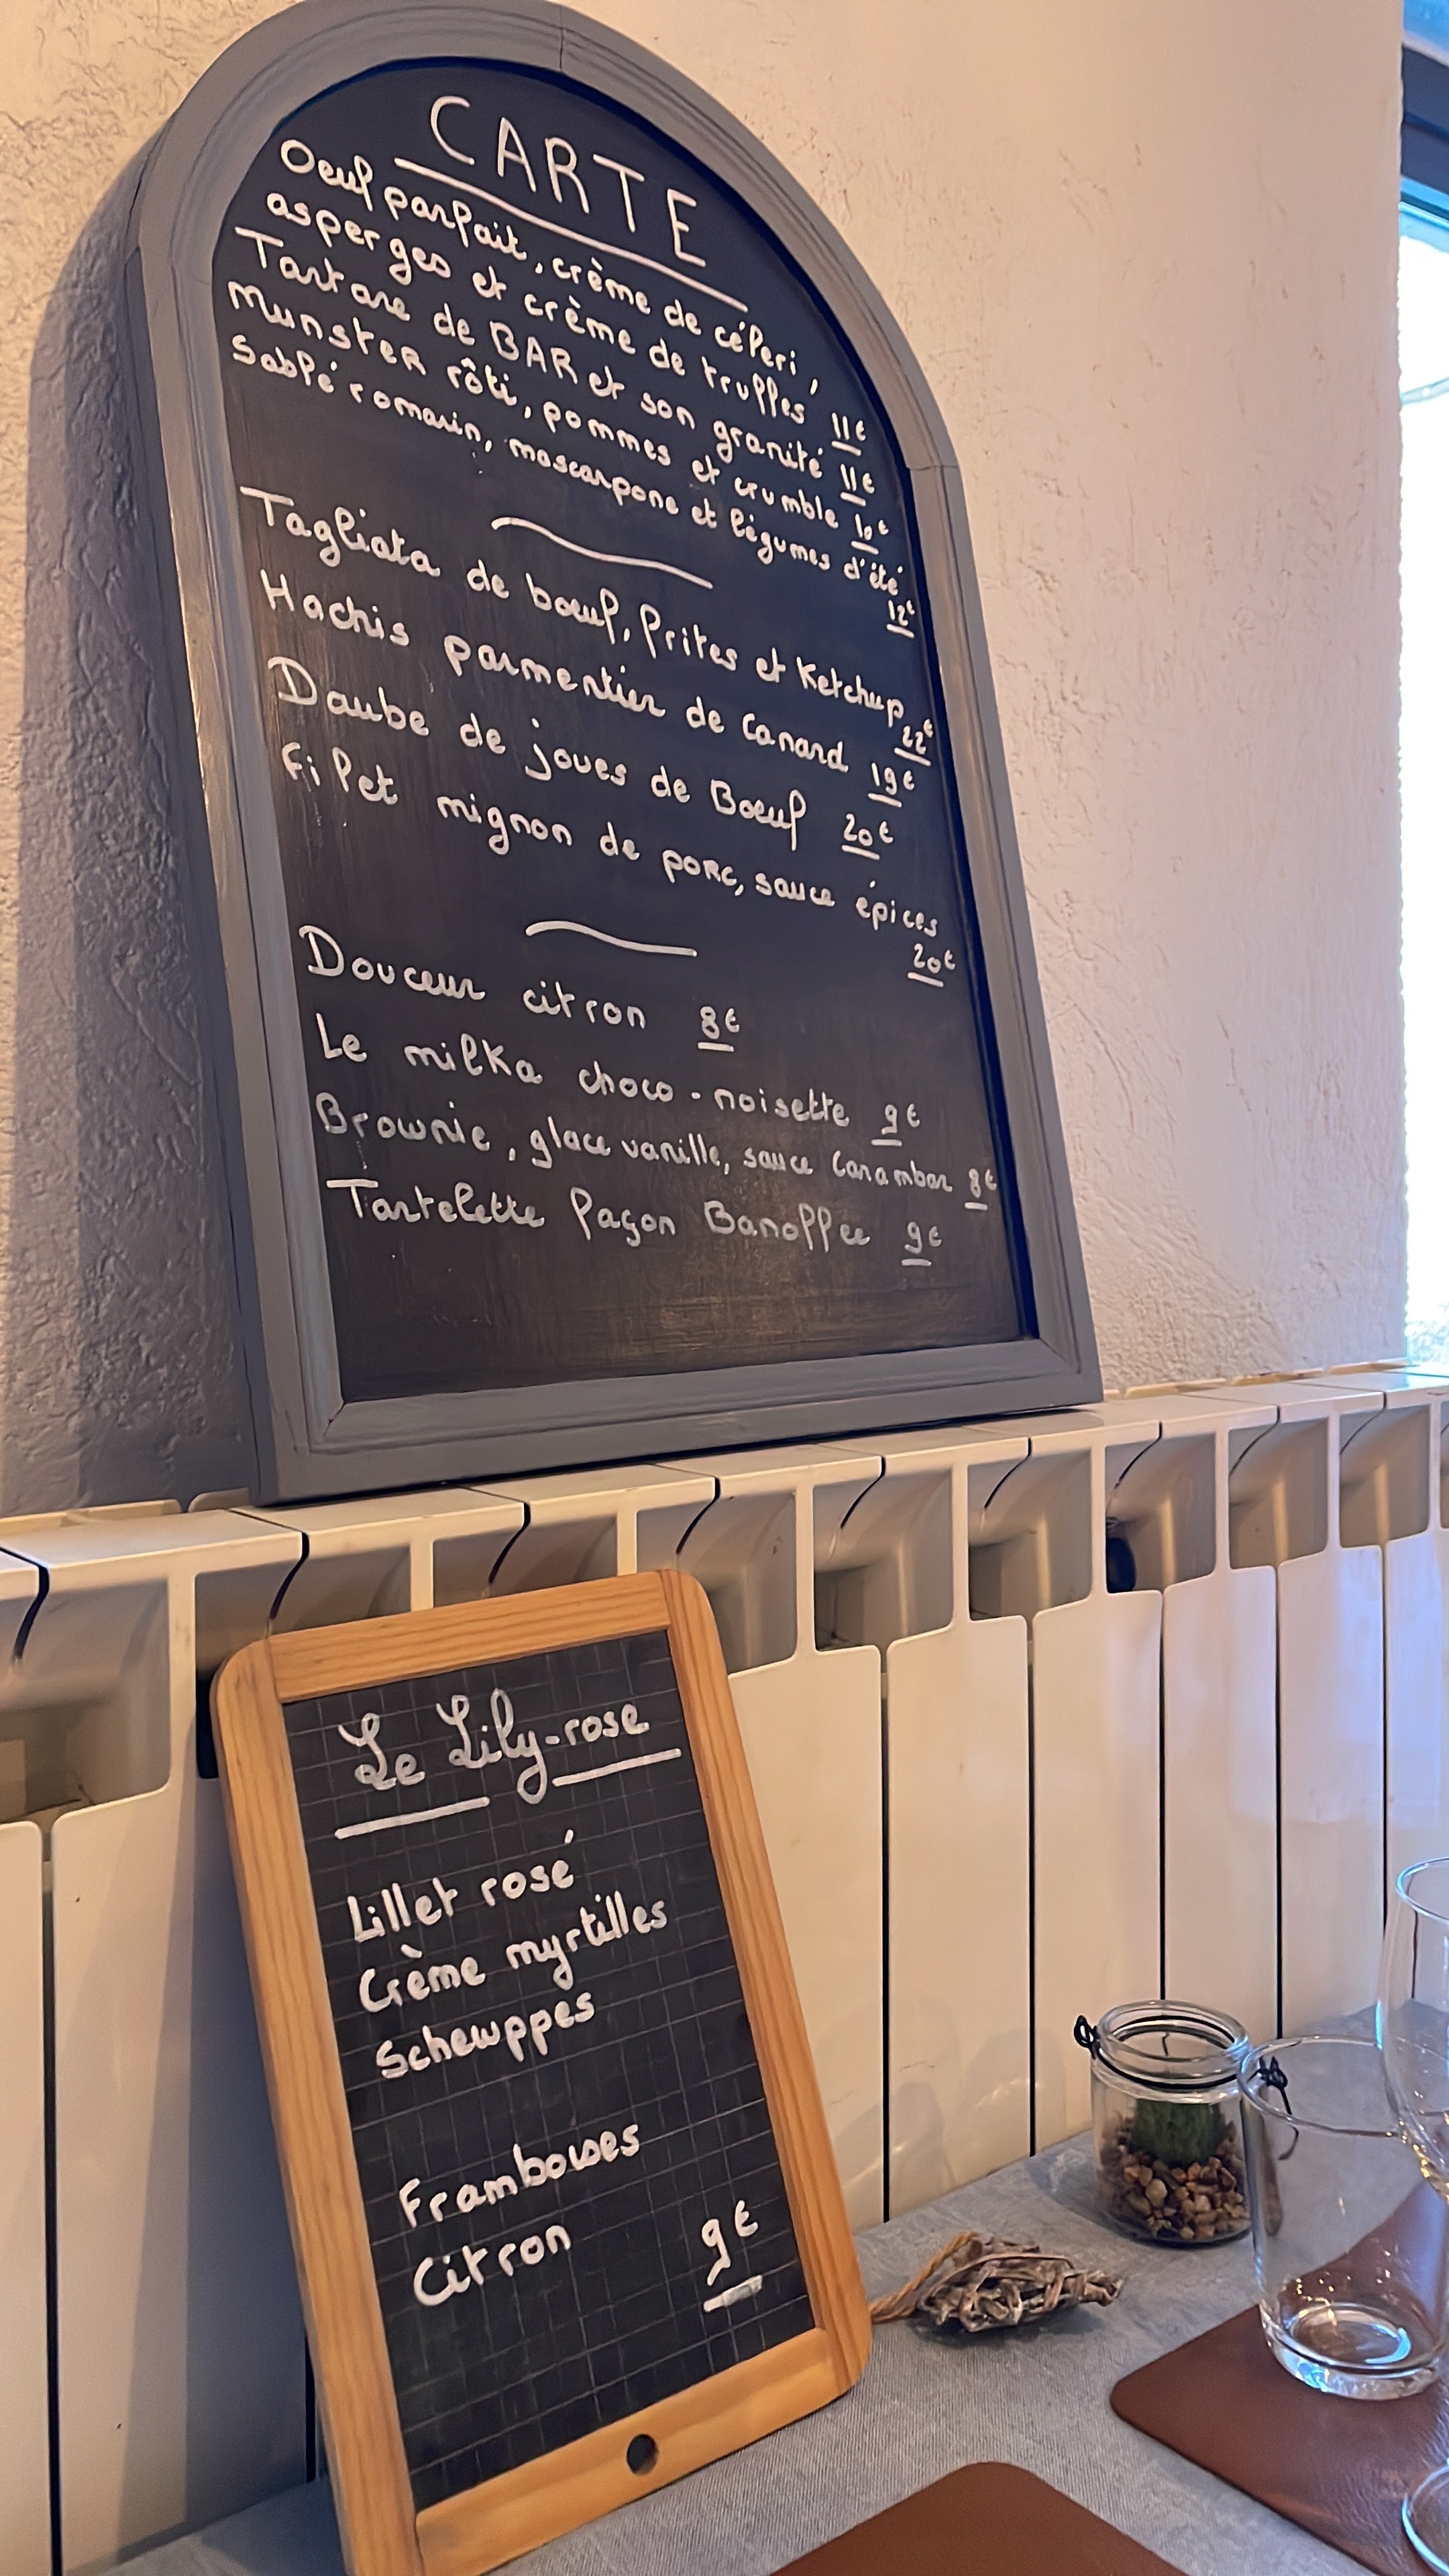 CARTE
Oeuf parfait, crème de céleri,
asperges et crème de truffes 11€
Tartare de BAR et son granité 11€
Munster rôti, pommes et crumble 10€
Sablé romarin, mascarpone et légumes d'été
12€
Tagliata de bœuf, frites et Ketchup 22€
Hachis parmentier de Canard 19€
Daube de joues de Bœuf 20€
Filet mignon de porc, sauce épices
20€
Douceur citron 8€
Le milka choco-noisette 9€
Brownie, glace vanille, sauce Carambar 8€
Tartelette façon Banoffee 9€
Le Lily-rose
Lillet rosé
Crème myrtilles
Schewppes
Framboises
Citron 9€